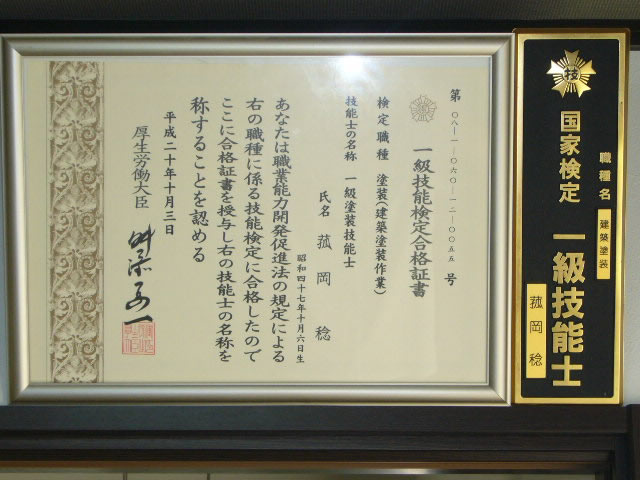 第〇八-一-〇六〇-一二-〇〇五五号
一級技能検定合格証書
検定職種 塗装(建築塗装作業)
技能士の名称 一級塗装技能士
氏名 菰岡 稔
昭和四十七年十月六日生
あなたは職業能力開発促進法の規定による
右の職種に係る技能検定に合格したので
ここに合格証書を授与し右の技能士の名称を
称することを認める
平成二十年十月三日
厚生労働大臣 舛添要一
技
職種名 建築塗装
国家検定 一級技能士
菰岡 稔